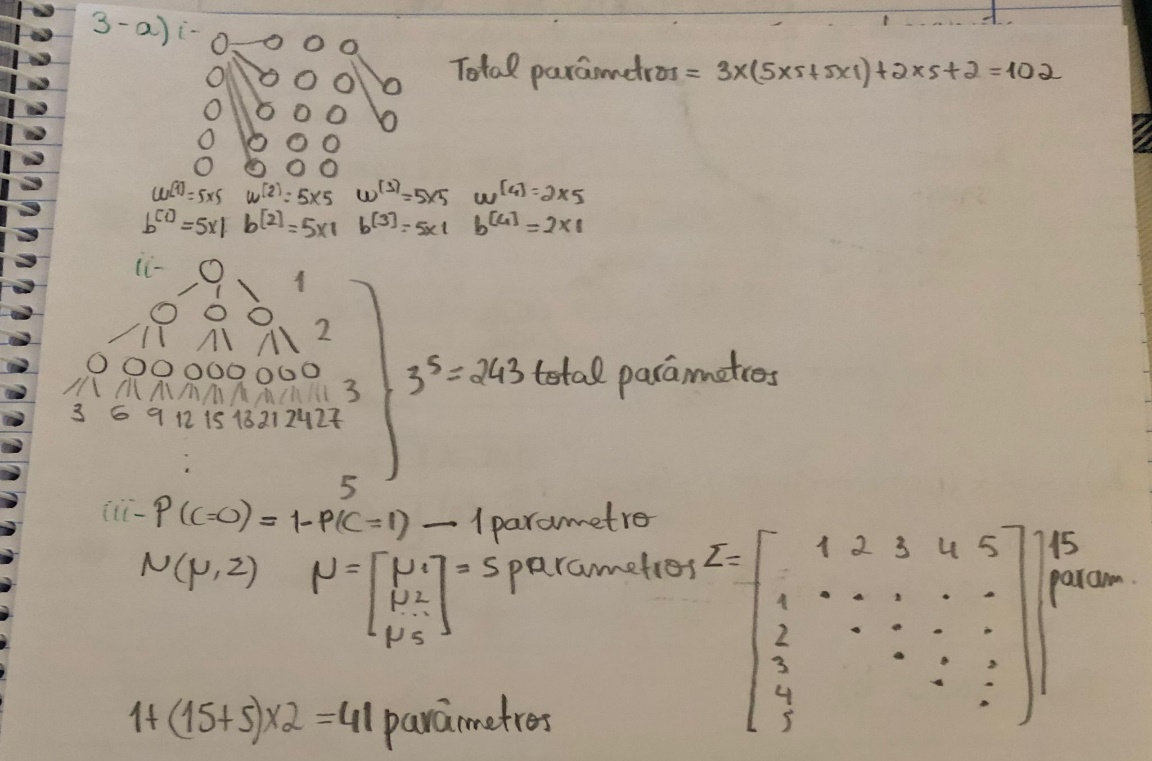 3-a) i-
Total parâmetros = 3x(5x5+5x1)+2x5+2=102
w[1]=5x5 w[2]=5x5 w[3]=5x5 w[4]=2x5
b[1]=5x1 b[2]=5x1 b[3]=5x1 b[4]=2x1
ii- 1
2
3
3 6 9 12 15 18 21 24 27
:
5
3^5=243 total parâmetros
iii- P(C=0) = 1-P(C=1) — 1 parametro
N(μ,Σ) μ=[μ1 μ2 ... μ5] = 5 parametros Σ=
1 2 3 4 5
1 . . . . .
2 . . . .
3 . . .
4 . .
5 .
15
param.
1+(15+5)x2 =41 parâmetros